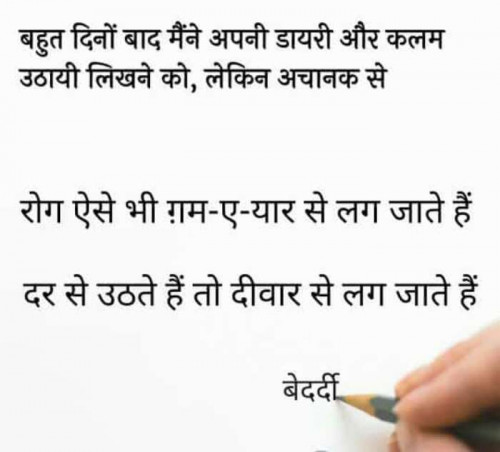 बहुत दिनों बाद मैंने अपनी डायरी और कलम
उठायी लिखने को, लेकिन अचानक से
रोग ऐसे भी ग़म-ए-यार से लग जाते हैं
दर से उठते हैं तो दीवार से लग जाते हैं
बेदर्दी